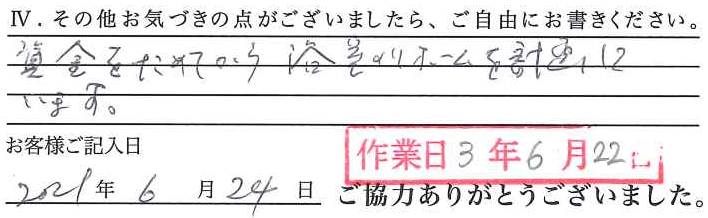 Ⅳ．その他お気づきの点がございましたら、ご自由にお書きください。
資金をためてから浴室のリホームを計画して
います。
お客様ご記入日
作業日3年6月22日
2021年6月24日 ご協力ありがとうございました。